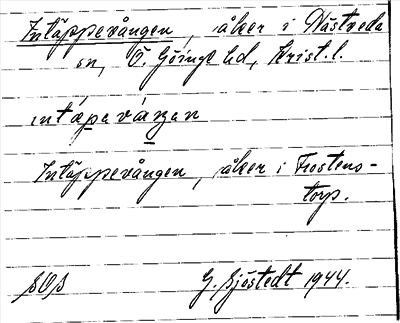 Intäppevången, åker i Nästveda
sn, Ö. Göinge hd, Krist. l.
intäpevåŋan
Intäppevången, åker i Frostens-
torp.
SOS G. Sjöstedt 1944.